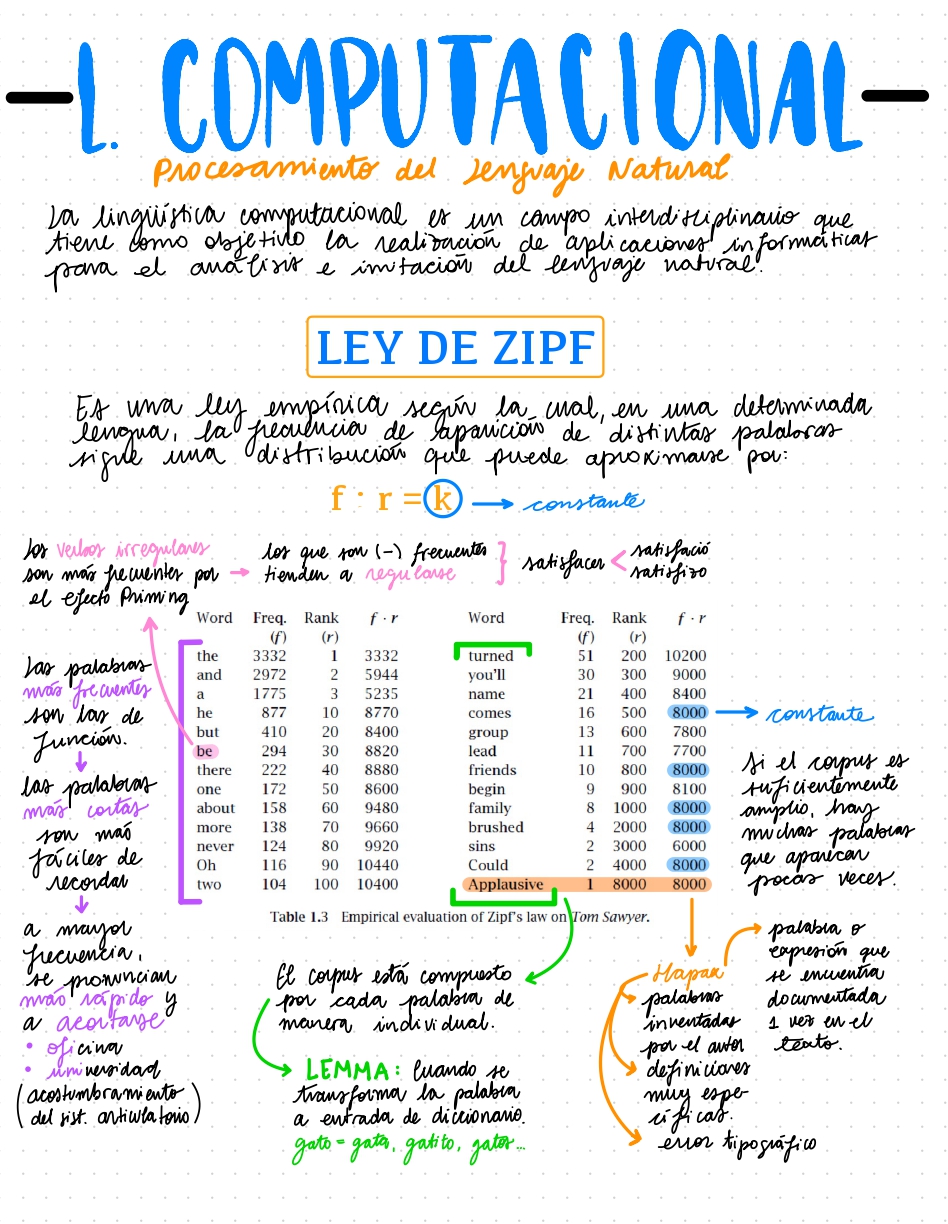 L. COMPUTACIONAL
Procesamiento del Lenguaje Natural
La lingüística computacional es un campo interdisciplinario que
tiene como objetivo la realización de aplicaciones informáticas
para el análisis e imitación del lenguaje natural.
LEY DE ZIPF
Es una ley empírica según la cual, en una determinada
lengua, la frecuencia de aparición de distintas palabras
sigue una distribución que puede aproximarse por:
f · r = k → constante
Los verbos irregulares
son más frecuentes por
el efecto Priming
→ los que son (-) frecuentes
tienden a regularse
satisfacer < satisfació
satisfizo
Word Freq. Rank f · r
(f) (r)
the 3332 1 3332
and 2972 2 5944
a 1775 3 5235
he 877 10 8770
but 410 20 8400
be 294 30 8820
there 222 40 8880
one 172 50 8600
about 158 60 9480
more 138 70 9660
never 124 80 9920
Oh 116 90 10440
two 104 100 10400
Word Freq. Rank f · r
(f) (r)
turned 51 200 10200
you'll 30 300 9000
name 21 400 8400
comes 16 500 8000 → constante
group 13 600 7800
lead 11 700 7700
friends 10 800 8000
begin 9 900 8100
family 8 1000 8000
brushed 4 2000 8000
sins 2 3000 6000
Could 2 4000 8000
Applausive 1 8000 8000
Table 1.3 Empirical evaluation of Zipf's law on Tom Sawyer.
Las palabras
más frecuentes
son las de
función.
↓
las palabras
más cortas
son más
fáciles de
recordar
↓
a mayor
frecuencia,
se pronuncian
más rápido y
a acortarse
• oficina
• universidad
(acostumbramiento
del sist. articulatorio)
Si el corpus es
suficientemente
amplio, hay
muchas palabras
que aparecen
pocas veces.
El corpus está compuesto
por cada palabra de
manera individual.
LEMMA: Cuando se
transforma la palabra
a entrada de diccionario.
gato = gata, gatito, gatos...
Hapax
palabra o
expresión que
se encuentra
documentada
1 vez en el
texto.
palabras
inventadas
por el autor
definiciones
muy espe-
cíficas.
error tipográfico